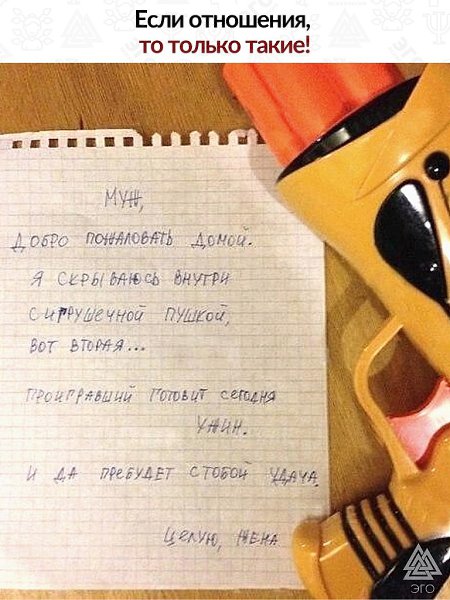 Если отношения,
то только такие!
МУЖ,
ДОБРО ПОЖАЛОВАТЬ ДОМОЙ.
Я СКРЫВАЮСЬ ВНУТРИ
С ИГРУШЕЧНОЙ ПУШКОЙ,
ВОТ ВТОРАЯ...
ПРОИГРАВШИЙ ГОТОВИТ СЕГОДНЯ
УЖИН.
И ДА ПРЕБУДЕТ С ТОБОЙ УДАЧА.
ЦЕЛУЮ, ЖЕНА
ЭГО